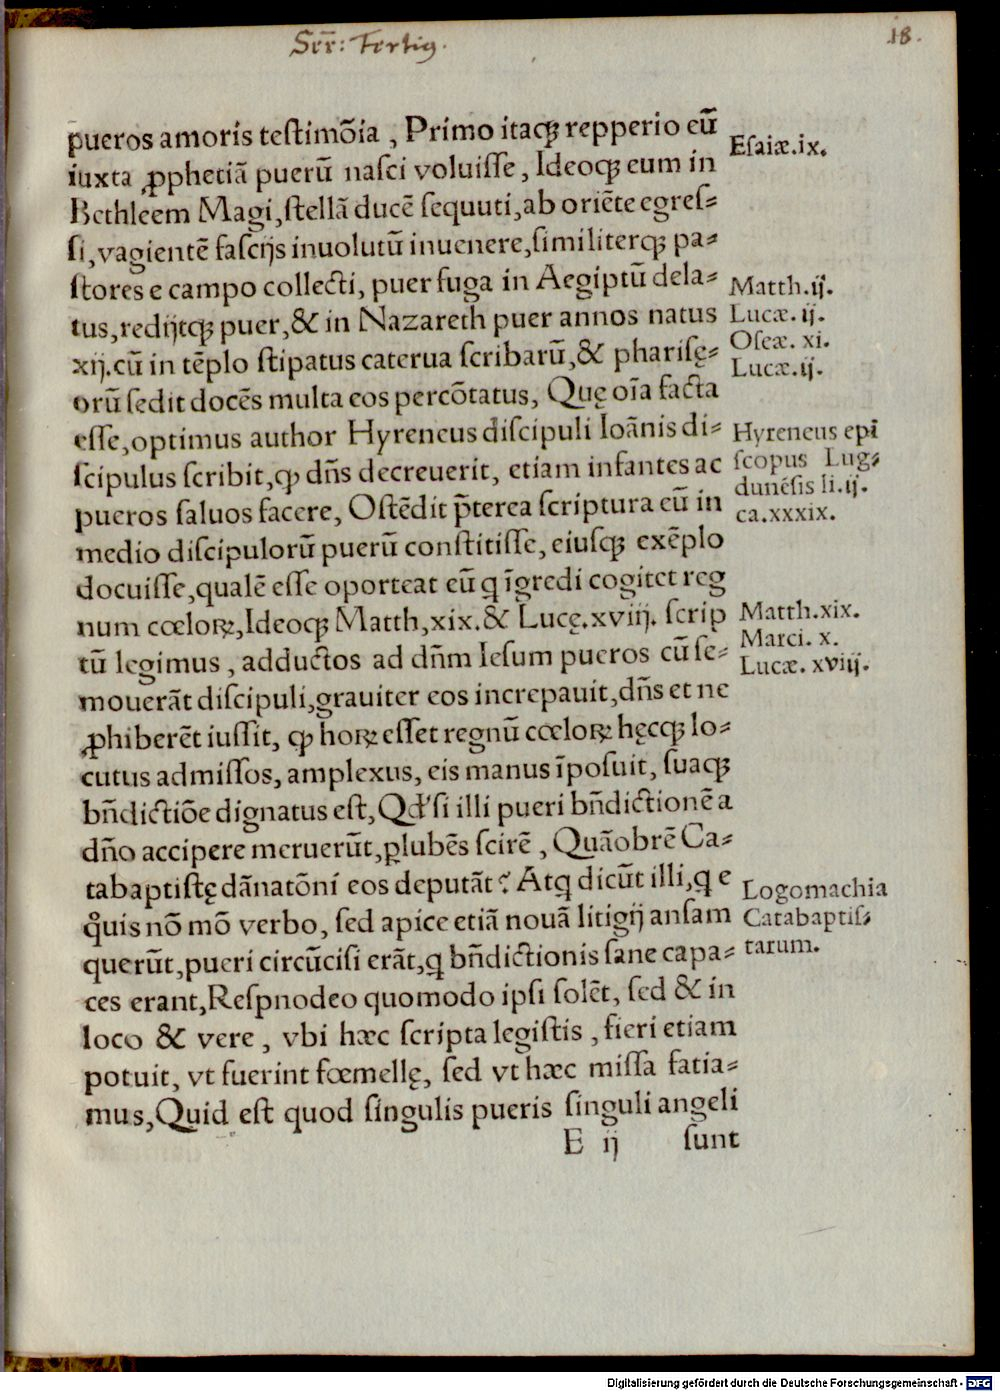 Serr: Tertiꝰ.
18.
pueros amoris teſtimōia, Primo itaqꝫ repperio eū
iuxta ꝓphetiā puerū naſci voluiſſe, Ideoqꝫ eum in
Bethleem Magi, ſtellā ducē ſequuti, ab oriēte egreſ⸗
ſi, vagientē faſcijs inuolutū inuenere, ſimiliterqꝫ pa⸗
ſtores e campo collecti, puer fuga in Aegiptū dela⸗
tus, redijtqꝫ puer, & in Nazareth puer annos natus
xij. cū in tēplo ſtipatus caterua ſcribarū, & phariſę⸗
orū ſedit docēs multa eos percōtatus, Quę oīa facta
eſſe, optimus author Hyreneus diſcipuli Ioānis di⸗
ſcipulus ſcribit, ꝙ dn̄s decreuerit, etiam infantes ac
pueros ſaluos facere, Oſtēdit p̄terea ſcriptura eū in
medio diſcipulorū puerū conſtitiſſe, eiuſqꝫ exēplo
docuiſſe, qualē eſſe oporteat eū q īgredi cogitet reg
num cœloꝝ, Ideoqꝫ Matth, xix. & Lucę. xviij. ſcrip
tū legimus, adductos ad dn̄m Ieſum pueros cū ſe⸗
mouerāt diſcipuli, grauiter eos increpauit, dn̄s et ne
ꝓhiberēt iuſſit, ꝙ hoꝝ eſſet regnū cœloꝝ hęcqꝫ lo⸗
cutus admiſſos, amplexus, eis manus īpoſuit, ſuaqꝫ
bn̄dictiōe dignatus eſt, Qd' ſi illi pueri bn̄dictionē a
dn̄o accipere meruerūt, ꝑlubēs ſcirē, Quāobrē Ca⸗
tabaptiſtę dānatōni eos deputāt? Atq dicūt illi, q e
qͦuis nō mō verbo, ſed apice etiā nouā litigij anſam
querūt, pueri circūciſi erāt, q bn̄dictionis ſane capa⸗
ces erant, Reſpnodeo quomodo ipſi ſolēt, ſed & in
loco & vere, vbi hæc ſcripta legiſtis, fieri etiam
potuit, vt fuerint fœmellę, ſed vt hæc miſſa fatia⸗
mus, Quid eſt quod ſingulis pueris ſinguli angeli
E ij ſunt
Eſaiæ. ix.
Matth. ij.
Lucæ. ij.
Oſeæ. xi.
Lucæ. ij.
Hyreneus epī
ſcopus Lug⸗
dunēſis li. ij.
ca. xxxix.
Matth. xix.
Marci. x.
Lucæ. xviij.
Logomachia
Catabaptiſ⸗
tarum.
Digitalisierung gefördert durch die Deutsche Forschungsgemeinschaft - DFG